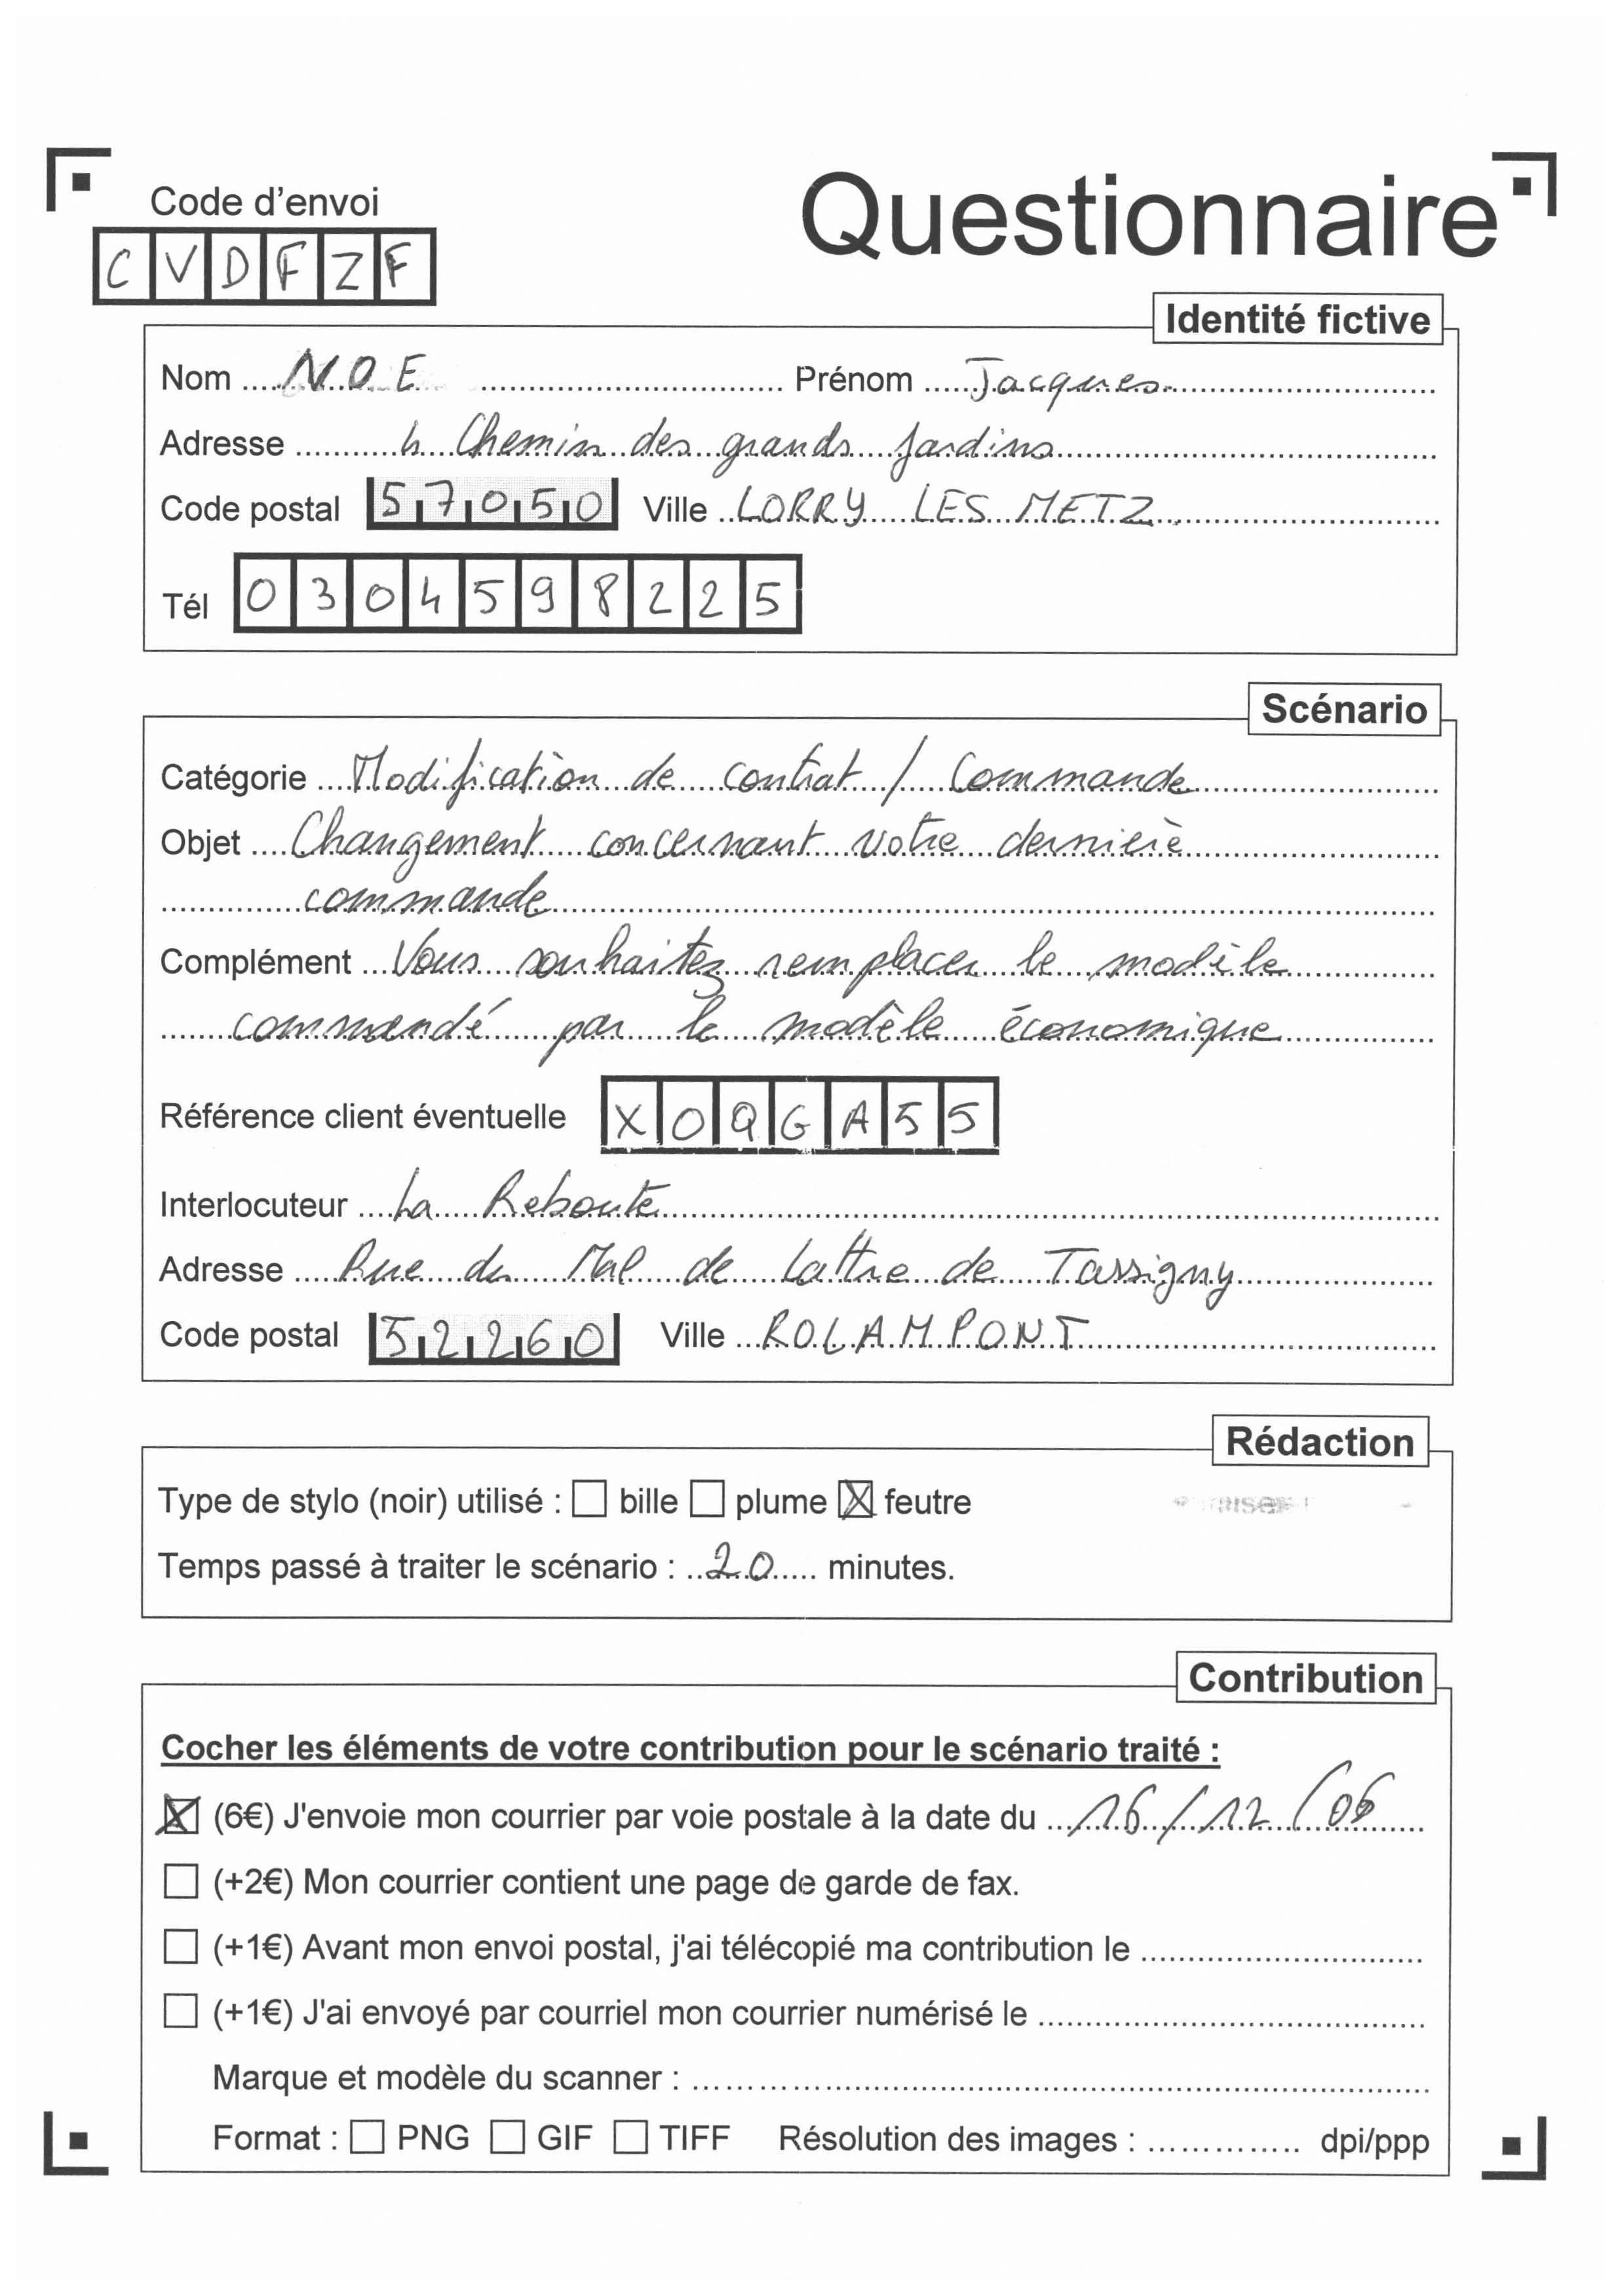 Questionnaire
Code d'envoi
CVDFZF
Identité fictive
Nom .... NOE .... Prénom .... Jacques
Adresse .... 4 Chemin des grands Jardins
Code postal 57050 Ville .. LORRY LES METZ
Tél 0304598225
Scénario
Catégorie ... Modification de contrat / Commande
Objet .... Changement concernant votre dernière
commande
Complément ... Vous souhaitez remplacer le modèle
commandé par le modèle économique
Référence client éventuelle XOQGA55
Interlocuteur .... La Reboute
Adresse .... Rue du Mal de Lattre de Tassigny
Code postal 52260 Ville ... ROLAMPONT
Rédaction
Type de stylo (noir) utilisé : ☐ bille ☐ plume ☒ feutre
Temps passé à traiter le scénario : .. 20 .... minutes.
Contribution
Cocher les éléments de votre contribution pour le scénario traité :
☒ (6€) J'envoie mon courrier par voie postale à la date du ... 16/12/06
☐ (+2€) Mon courrier contient une page de garde de fax.
☐ (+1€) Avant mon envoi postal, j'ai télécopié ma contribution le ....
☐ (+1€) J'ai envoyé par courriel mon courrier numérisé le ....
Marque et modèle du scanner : ....
Format : ☐ PNG ☐ GIF ☐ TIFF Résolution des images : .... dpi/ppp